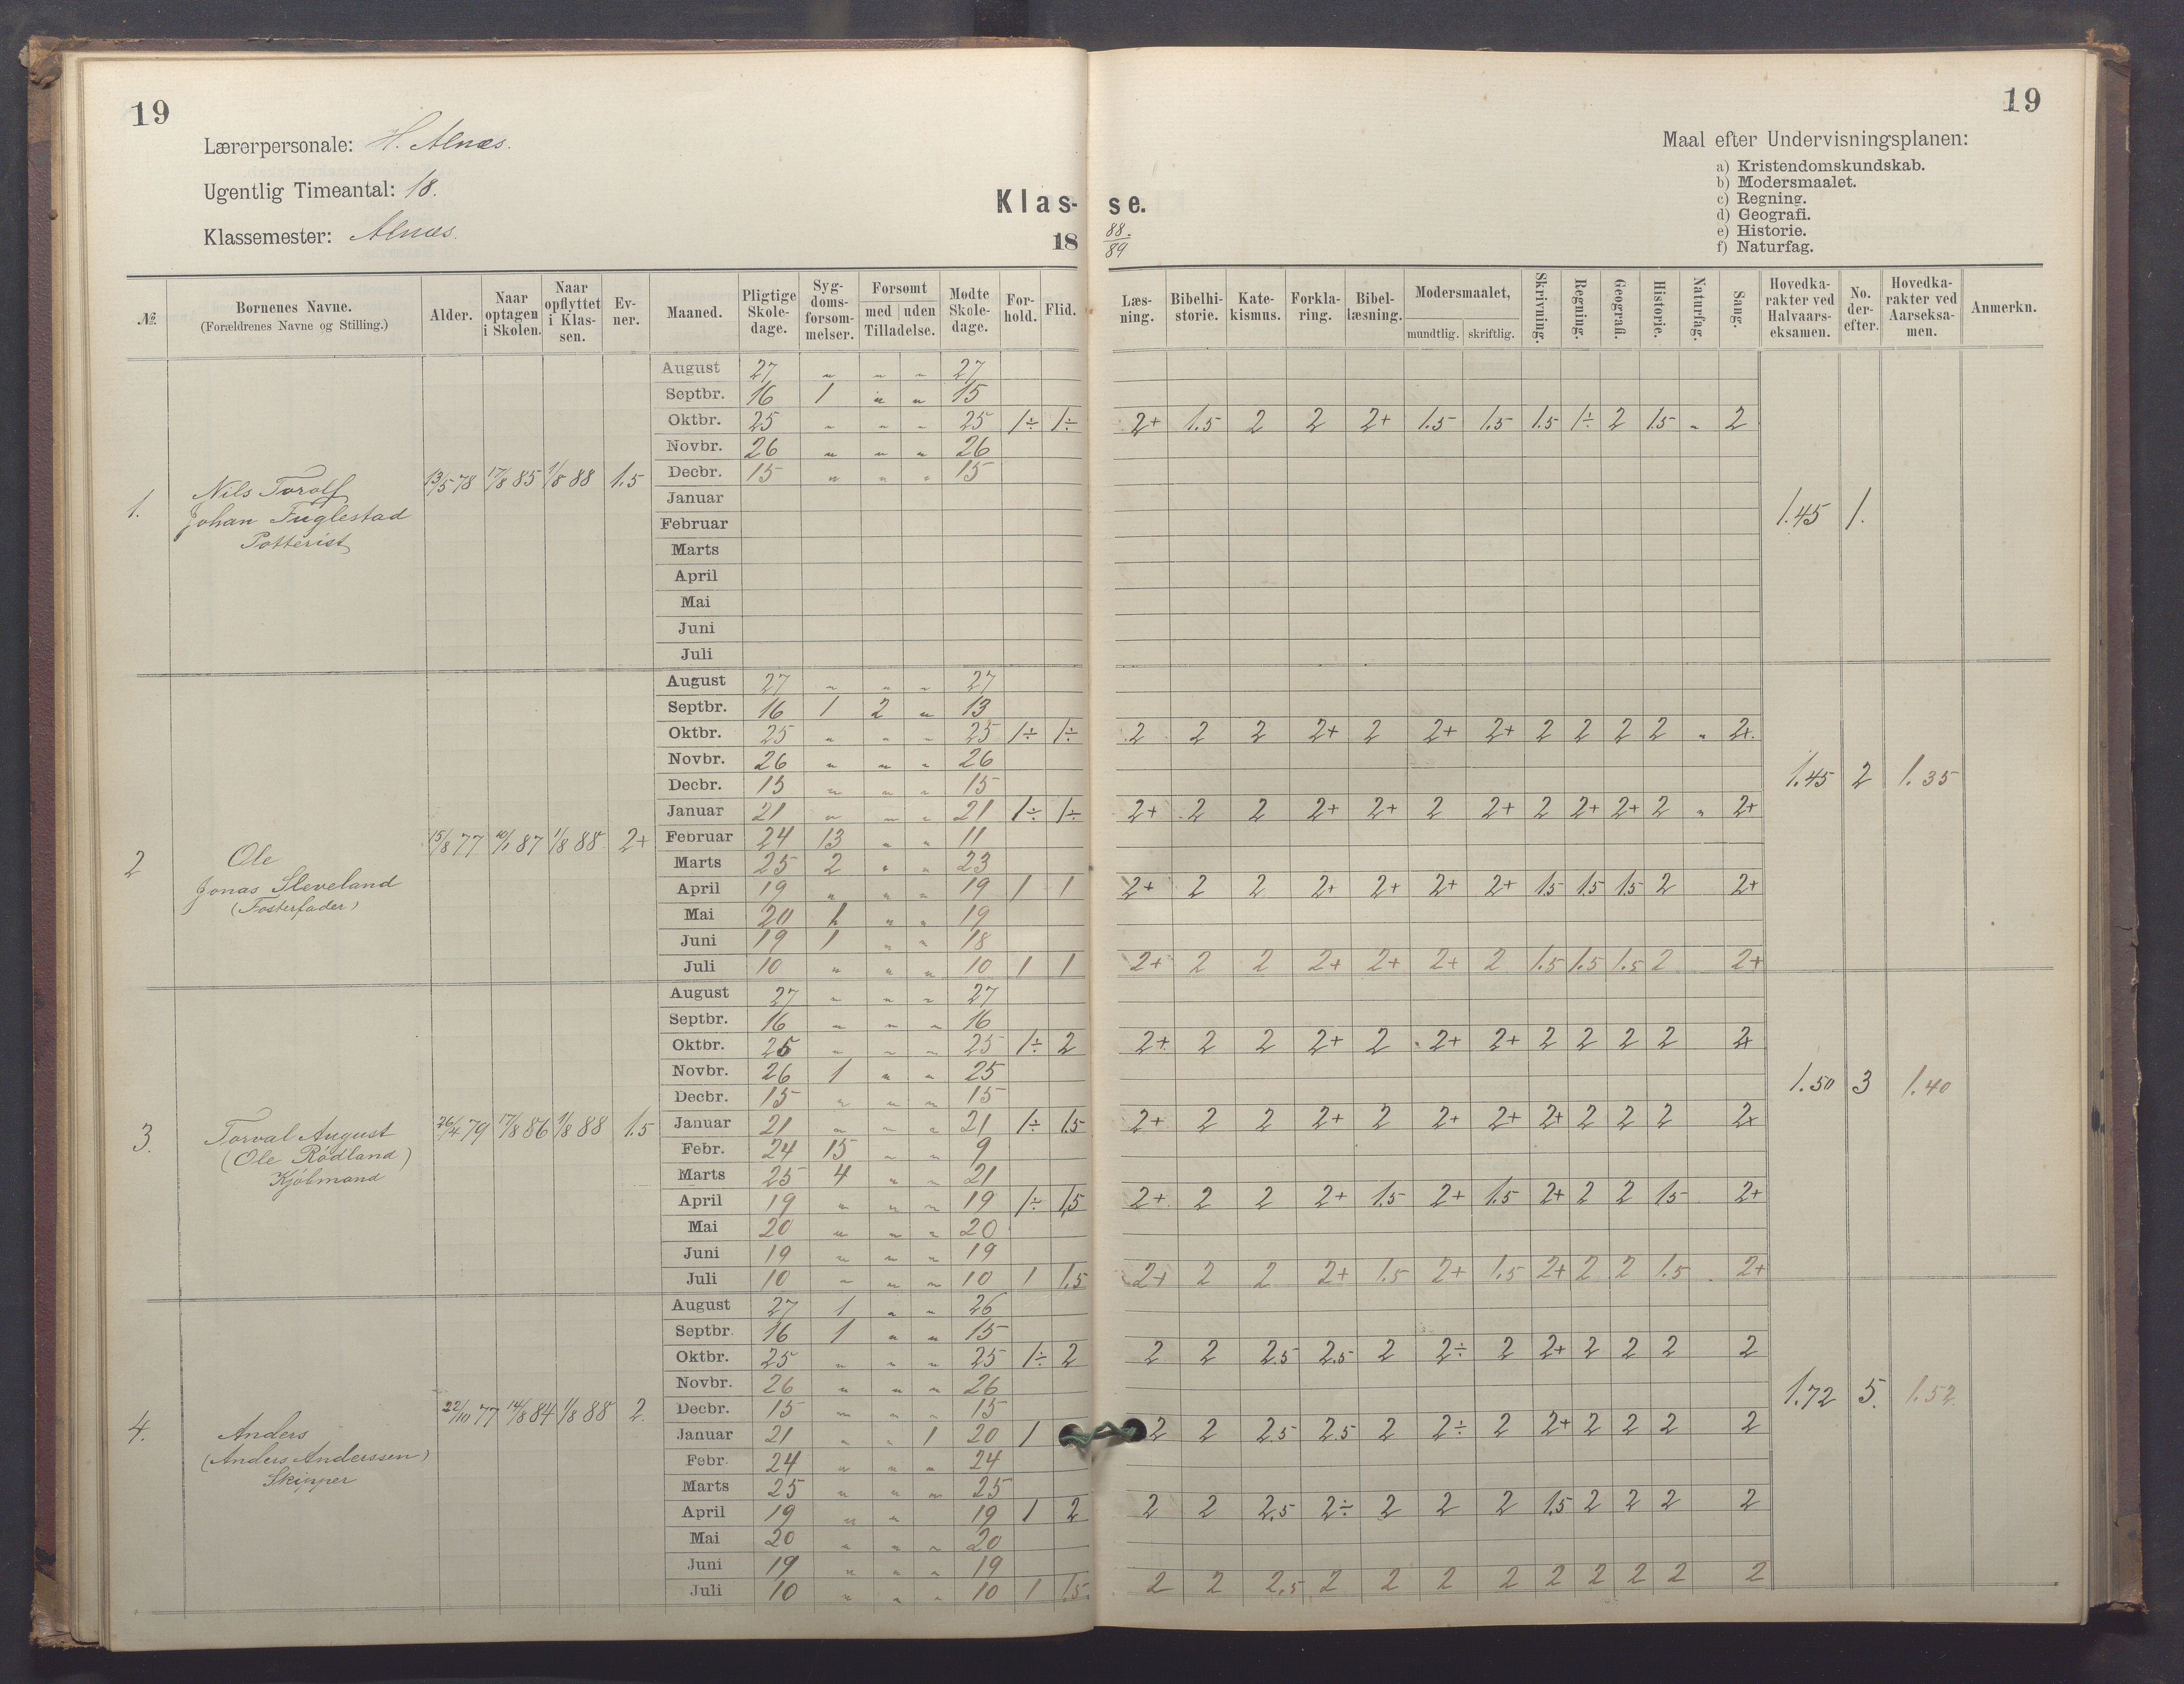 19
19
Lærerpersonale: H. Alnæs.
Ugentlig Timeantal: 18.
Klassemester: Alnæs.
Klas- se.
18 88/89
Maal efter Undervisningsplanen:
a) Kristendomskundskab.
b) Modersmaalet.
c) Regning.
d) Geografi.
e) Historie.
f) Naturfag.
№ Børnenes Navne. (Forældrenes Navne og Stilling.) Alder. Naar optagen i Skolen. Naar opflyttet i Klassen. Ev-ner. Maaned. Pligtige Skole-dage. Syg-doms-forsom-melser. Forsømt med uden Tilladelse. Mødte Skole-dage. For-hold. Flid. Læs-ning. Bibelhi-storie. Kate-kismus. Forkla-ring. Bibel-læsning. Modersmaalet, mundtlig. skriftlig. Skrivning. Regning. Geografi. Historie. Naturfag. Sang. Hovedka-rakter ved Halvaars-eksamen. No. der-efter. Hovedka-rakter ved Aarseksa-men. Anmerkn.
1. Nils Torolf
Johan Fuglestad
Potterist
13/5 78 17/8 85 1/8 88 1.5
August 27 „ „ „ 27
Septbr. 16 1 „ „ 15
Oktbr. 25 „ „ „ 25 1÷ 1÷ 2+ 1.5 2 2 2+ 1.5 1.5 1.5 1÷ 2 1.5 „ 2
Novbr. 26 „ „ „ 26
Decbr. 15 „ „ „ 15
Januar
Februar
Marts
April
Mai
Juni
Juli
1.45 1.
2 Ole
Jonas Sleveland
(Fosterfader)
15/8 77 10/1 87 1/8 88 2+
August 27 „ „ „ 27
Septbr. 16 1 2 „ 13
Oktbr. 25 „ „ „ 25 1÷ 1÷ 2 2 2 2+ 2 2+ 2+ 2 2 2 2 „ 2+
Novbr. 26 „ „ „ 26
Decbr. 15 „ „ „ 15
Januar 21 „ „ „ 21 1÷ 1÷ 2+ 2 2 2+ 2+ 2 2+ 2 2+ 2+ 2 „ 2+
Februar 24 13 „ „ 11
Marts 25 2 „ „ 23
April 19 „ „ „ 19 1 1 2+ 2 2 2+ 2+ 2+ 2+ 1.5 1.5 1.5 2 2+
Mai 20 1 „ „ 19
Juni 19 1 „ „ 18
Juli 10 „ „ „ 10 1 1 2+ 2 2 2+ 2+ 2+ 2 1.5 1.5 1.5 2 2+
1.45 2 1.35
3. Torval August
(Ole Rødland)
Kjøbmand
26/4 79 17/8 86 1/8 88 1.5
August 27 „ „ „ 27
Septbr. 16 „ „ „ 16
Oktbr. 25 „ „ „ 25 1÷ 2 2+ 2 2 2+ 2 2+ 2+ 2 2 2 2 2+
Novbr. 26 1 „ „ 25
Decbr. 15 „ „ „ 15
Januar 21 „ „ „ 21 1÷ 1.5 2+ 2 2 2+ 2 2+ 2+ 2+ 2 2 2 2+
Febr. 24 15 „ „ 9
Marts 25 4 „ „ 21
April 19 „ „ „ 19 1÷ 1.5 2+ 2 2 2+ 1.5 2+ 1.5 2+ 2 2 1.5 2+
Mai 20 „ „ „ 20
Juni 19 „ „ „ 19
Juli 10 „ „ „ 10 1 1.5 2+ 2 2 2+ 1.5 2+ 1.5 2+ 2 2 1.5 2+
1.50 3 1.40
4. Anders
(Anders Anderssen)
Skipper
22/10 77 14/8 84 1/8 88 2.
August 27 1 „ „ 26
Septbr. 16 1 „ „ 15
Oktbr. 25 „ „ „ 25 1÷ 2 2 2 2.5 2.5 2 2÷ 2 2+ 2 2 2 2
Novbr. 26 „ „ „ 26
Decbr. 15 „ „ „ 15
Januar 21 „ „ 1 20 1 2 2 2.5 2.5 2 2÷ 2 2+ 2 2 2 2
Febr. 24 „ „ „ 24
Marts 25 „ „ „ 25
April 19 „ „ 19 1 2 2 2 2.5 2÷ 2 2 2 1.5 2 2 2 2
Mai 20 „ „ „ 20
Juni 19 „ „ „ 19
Juli 10 „ „ „ 10 1 1.5 2 2 2.5 2 2 2 2 2 2 2 2 2
1.72 5. 1.52